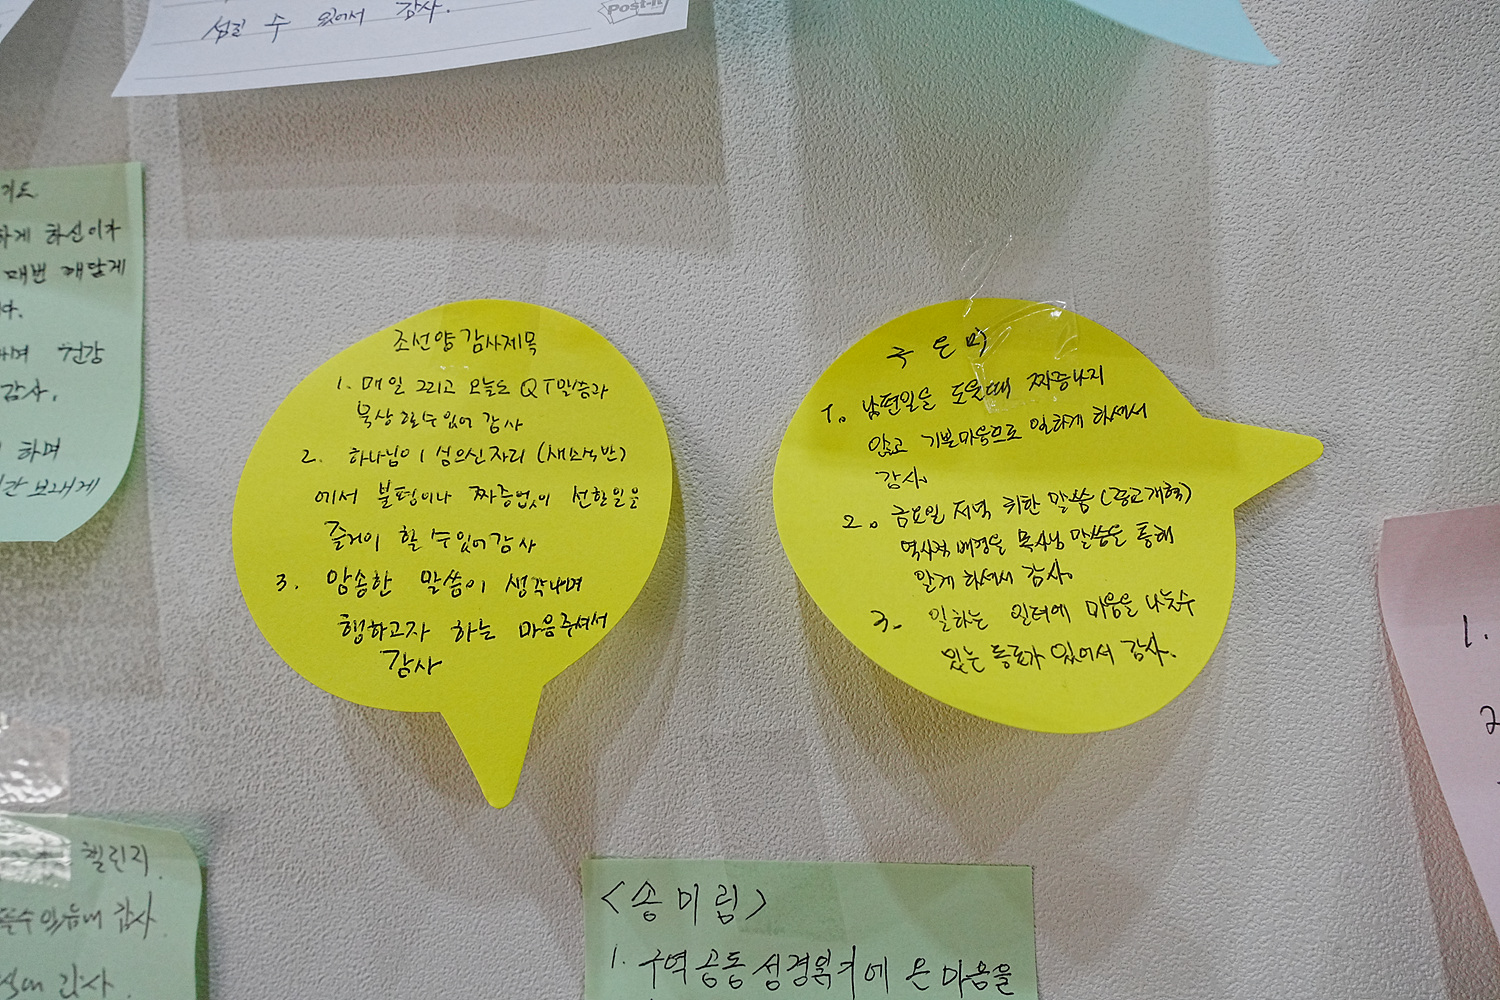 섬길 수 있어서 감사.
Post-it
기도
하게 하신이가
매번 깨닫게
하며 건강
감사.
하며
보내게
조선양 감사제목
1. 매일 그리고 오늘도 QT말씀과
묵상 할수있어 감사
2. 하나님이 심으신자리 (새소식반)
에서 불평이나 짜증없이 선한일을
즐거이 할 수있어 감사
3. 암송한 말씀이 생각나며
행하고자 하는 마음주셔서
감사
국은미
1. 남편일을 도울때 짜증나지
않고 기쁜마음으로 일하게 하셔서
감사.
2. 금요일 저녁 귀한 말씀(종교개혁)
역사적 배경을 목사님 말씀을 통해
알게 하셔서 감사.
3. 일하는 일터에 마음을 나눌수
있는 동료가 있어서 감사.
챌린지.
감사
감사.
<송미림>
1. 구역공동성경읽기에 온 마음을
1.
2